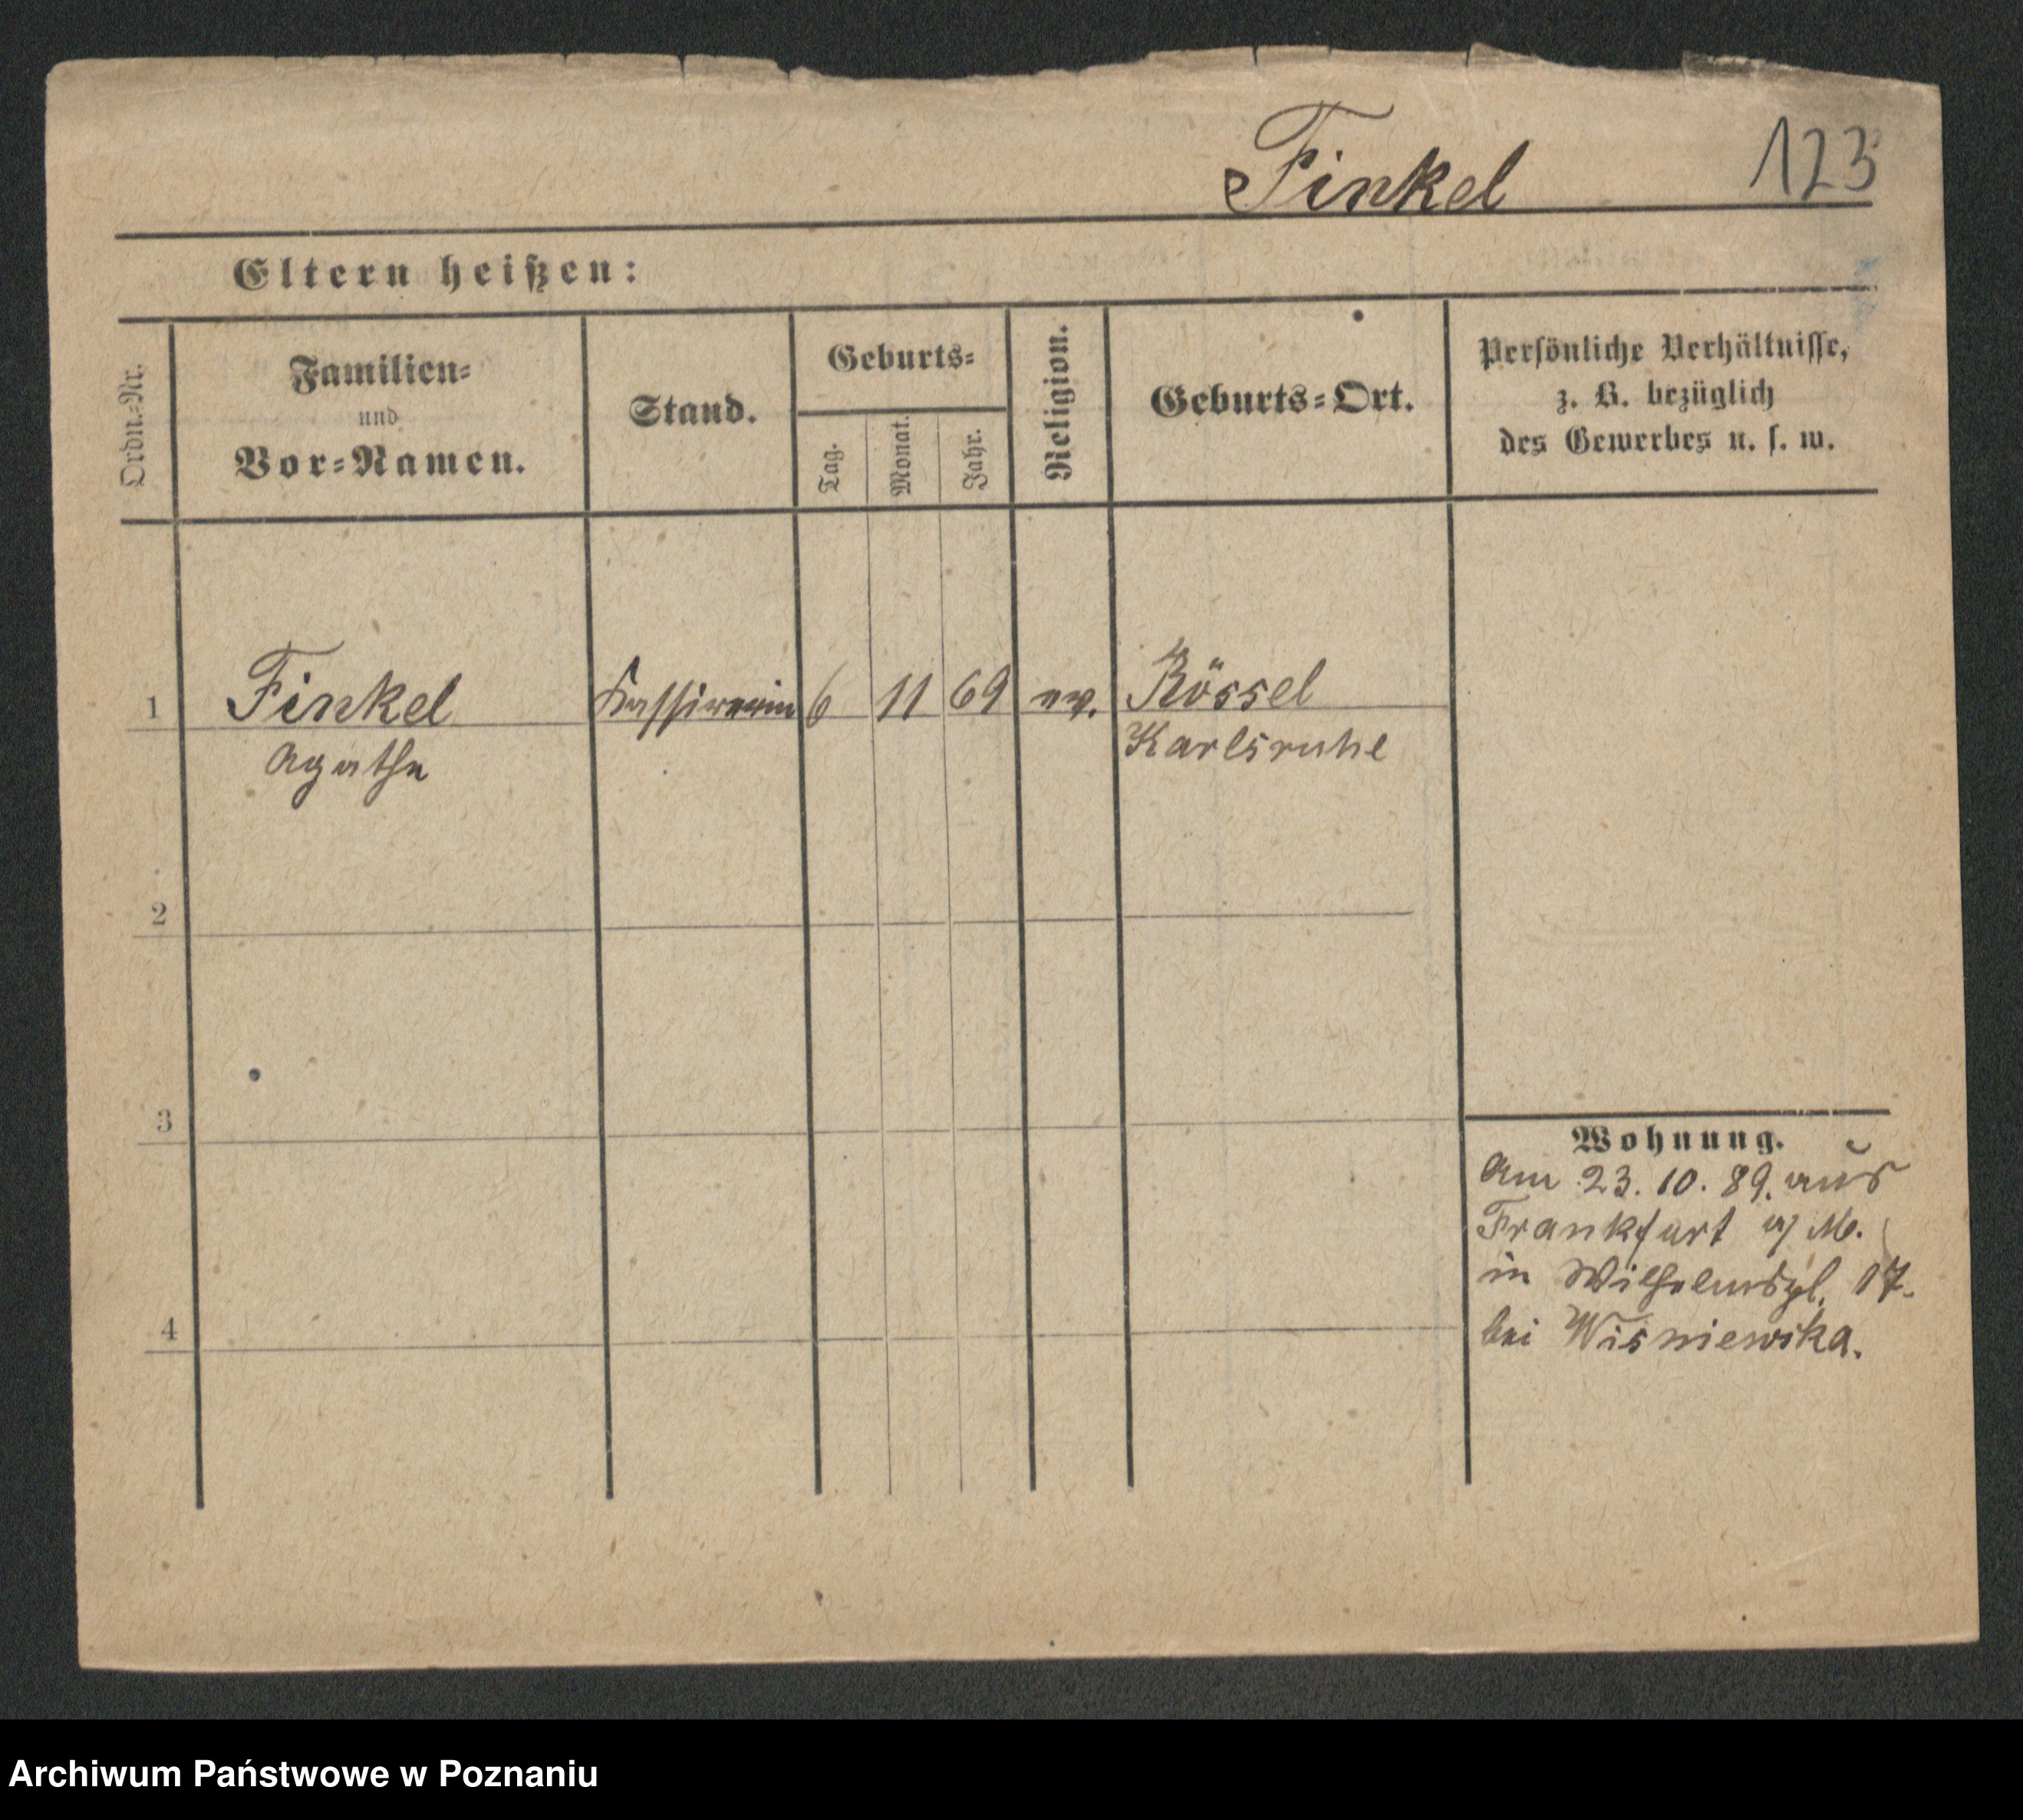 Finkel 123
Eltern heißen:
Ordn.=Nr.
Familien=
und
Vor=Namen.
Stand.
Geburts=
Tag.
Monat.
Jahr.
Religion.
Geburts=Ort.
Persönliche Verhältnisse,
z. B. bezüglich
des Gewerbes u. s. w.
1 Finkel Kassirerin 6 11 69 ev. Rössel
Agathe Karlsruhe
2
3
Wohnung.
Am 23. 10. 89. aus
Frankfurt a/M.
in Wilhelmspl. 17.
4
bei Wisniewska.
Archiwum Państwowe w Poznaniu